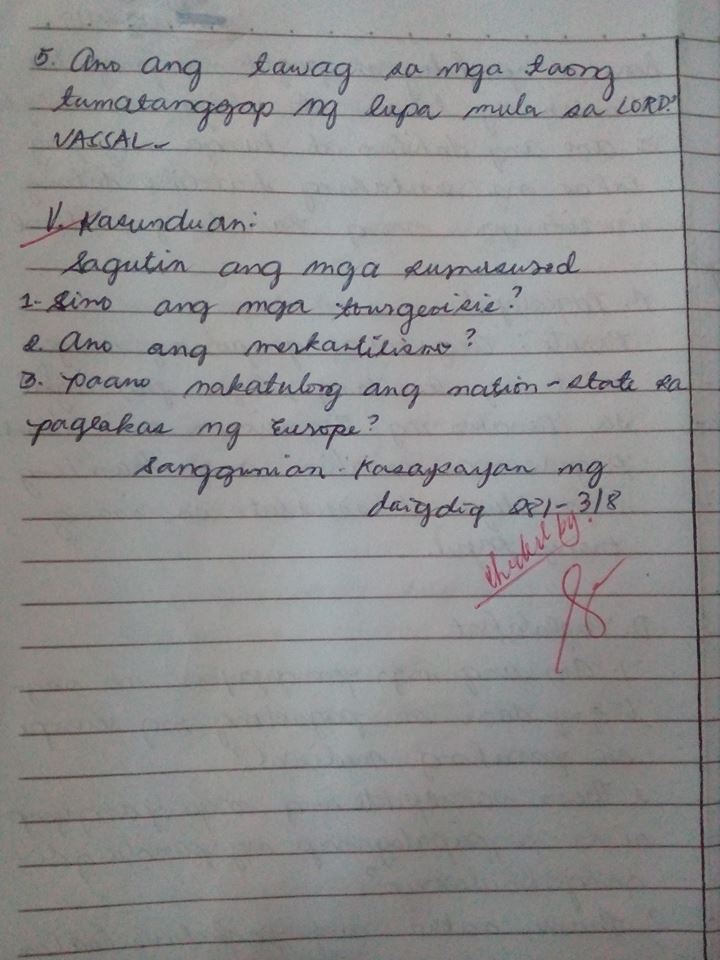 5. Ano ang tawag sa mga taong
tumatanggap ng lupa mula sa LORD?
VASSAL.
V. Kasunduan:
Sagutin ang mga sumusunod
1. Sino ang mga bourgeoisie?
2. Ano ang merkantilismo?
3. Paano nakatulong ang nation-state sa
paglakas ng Europe?
Sanggunian. Kasaysayan ng
daigdig 281-318
checked by: